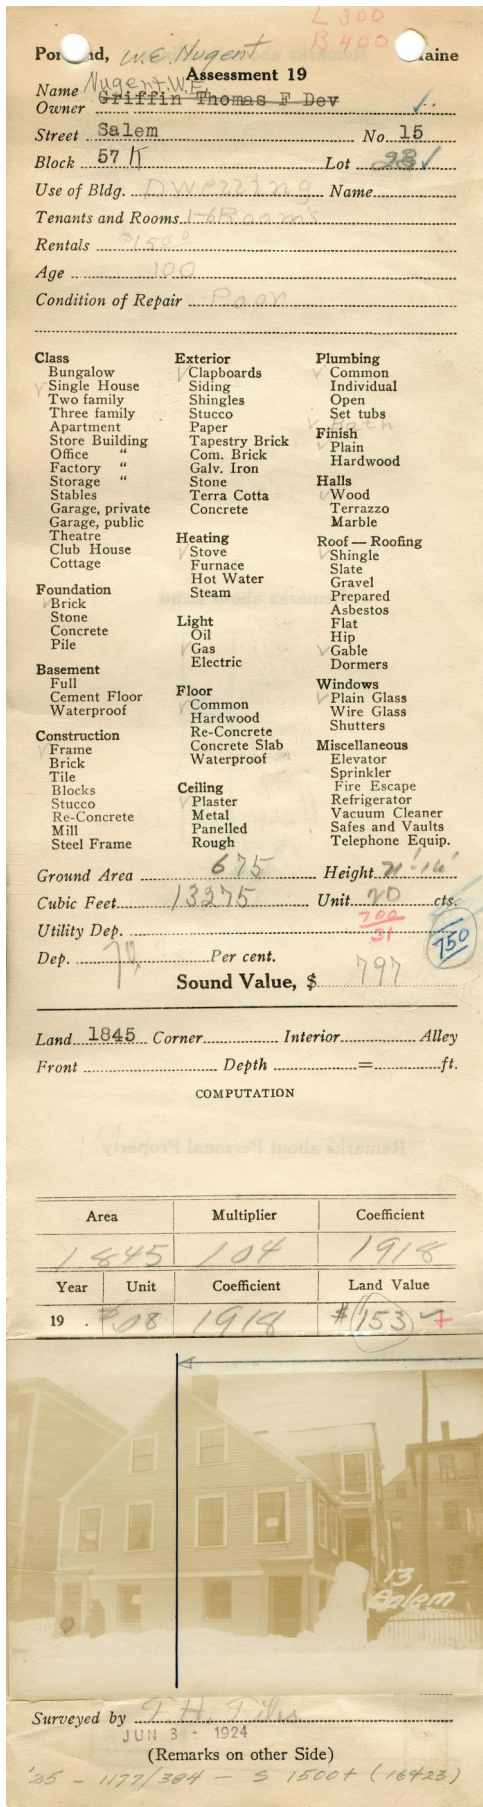 L 300
B 400
Portland, W.E. Nugent Maine
Assessment 19
Name Nugent. W.E.
Owner Griffin Thomas F Dev
Street Salem No. 15
Block 57 K Lot 23 ✓
Use of Bldg. Dwelling Name
Tenants and Rooms 1-6 Rooms
Rentals $15.00
Age 100
Condition of Repair Poor
Class
Bungalow
✓ Single House
Two family
Three family
Apartment
Store Building
Office "
Factory "
Storage "
Stables
Garage, private
Garage, public
Theatre
Club House
Cottage
Foundation
✓ Brick
Stone
Concrete
Pile
Basement
Full
Cement Floor
Waterproof
Construction
✓ Frame
Brick
Tile
Blocks
Stucco
Re-Concrete
Mill
Steel Frame
Exterior
✓ Clapboards
Siding
Shingles
Stucco
Paper
Tapestry Brick
Com. Brick
Galv. Iron
Stone
Terra Cotta
Concrete
Heating
✓ Stove
Furnace
Hot Water
Steam
Light
Oil
✓ Gas
Electric
Floor
✓ Common
Hardwood
Re-Concrete
Concrete Slab
Waterproof
Ceiling
✓ Plaster
Metal
Panelled
Rough
Plumbing
✓ Common
Individual
Open
Set tubs
✓ Bath
Finish
✓ Plain
Hardwood
Halls
✓ Wood
Terrazzo
Marble
Roof — Roofing
✓ Shingle
Slate
Gravel
Prepared
Asbestos
Flat
Hip
✓ Gable
Dormers
Windows
✓ Plain Glass
Wire Glass
Shutters
Miscellaneous
Elevator
Sprinkler
Fire Escape
Refrigerator
Vacuum Cleaner
Safes and Vaults
Telephone Equip.
Ground Area 675 Height
Cubic Feet 13275 Unit 20 cts.
Utility Dep. 700
31
750
Dep. 70 Per cent.
Sound Value, $ 797
Land 1845 Corner Interior Alley
Front Depth = ft.
COMPUTATION
Remarks about Personal Property
Area Multiplier Coefficient
1845 104 1918
Year Unit Coefficient Land Value
19 . $.08 1918 $153
13
Salem
Surveyed by
JUN 3 - 1924
(Remarks on other Side)
'25 - 1177/384 - S 1500+ (16423)